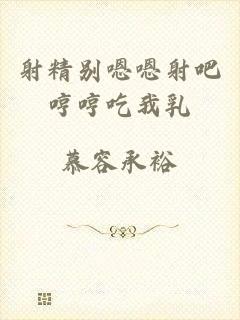 射精别嗯嗯射吧
哼哼吃我乳
慕容承裕